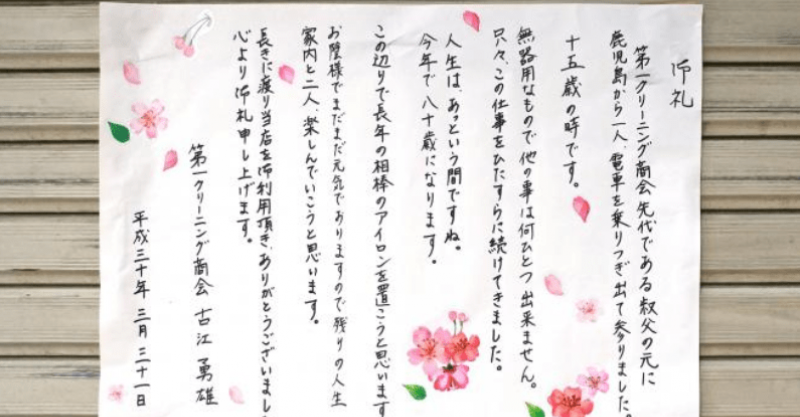 御礼
第一クリーニング商会先代である叔父の元に
鹿児島から一人、電車を乗りつぎ出て参りました。
十五歳の時です。
無器用なもので他の事は何ひとつ出来ません。
只々、この仕事をひたすらに続けてきました。
人生は、あっという間ですね。
今年で八十歳になります。
この辺りで長年の相棒のアイロンを置こうと思います
お陰様でまだまだ元気でありますので残りの人生
家内と二人、楽しんでいこうと思います。
長きに渡り当店を御利用頂き、ありがとうございました
心より御礼申し上げます。
第一クリーニング商会 古江 勇雄
平成三十年 三月 三十一日